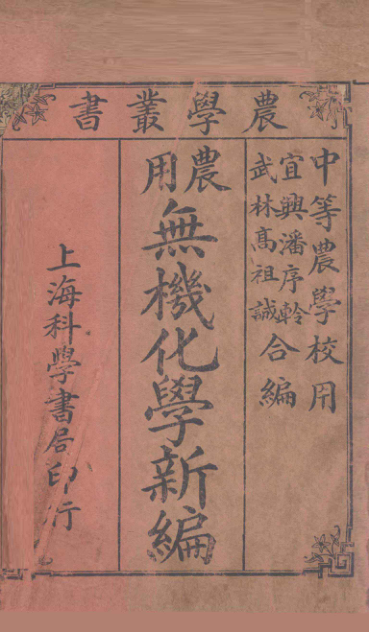 農學叢書
中等農學校用
宜興潘序幹
武林高祖誠
合編
農用
無機化學新編
上海科學書局印行